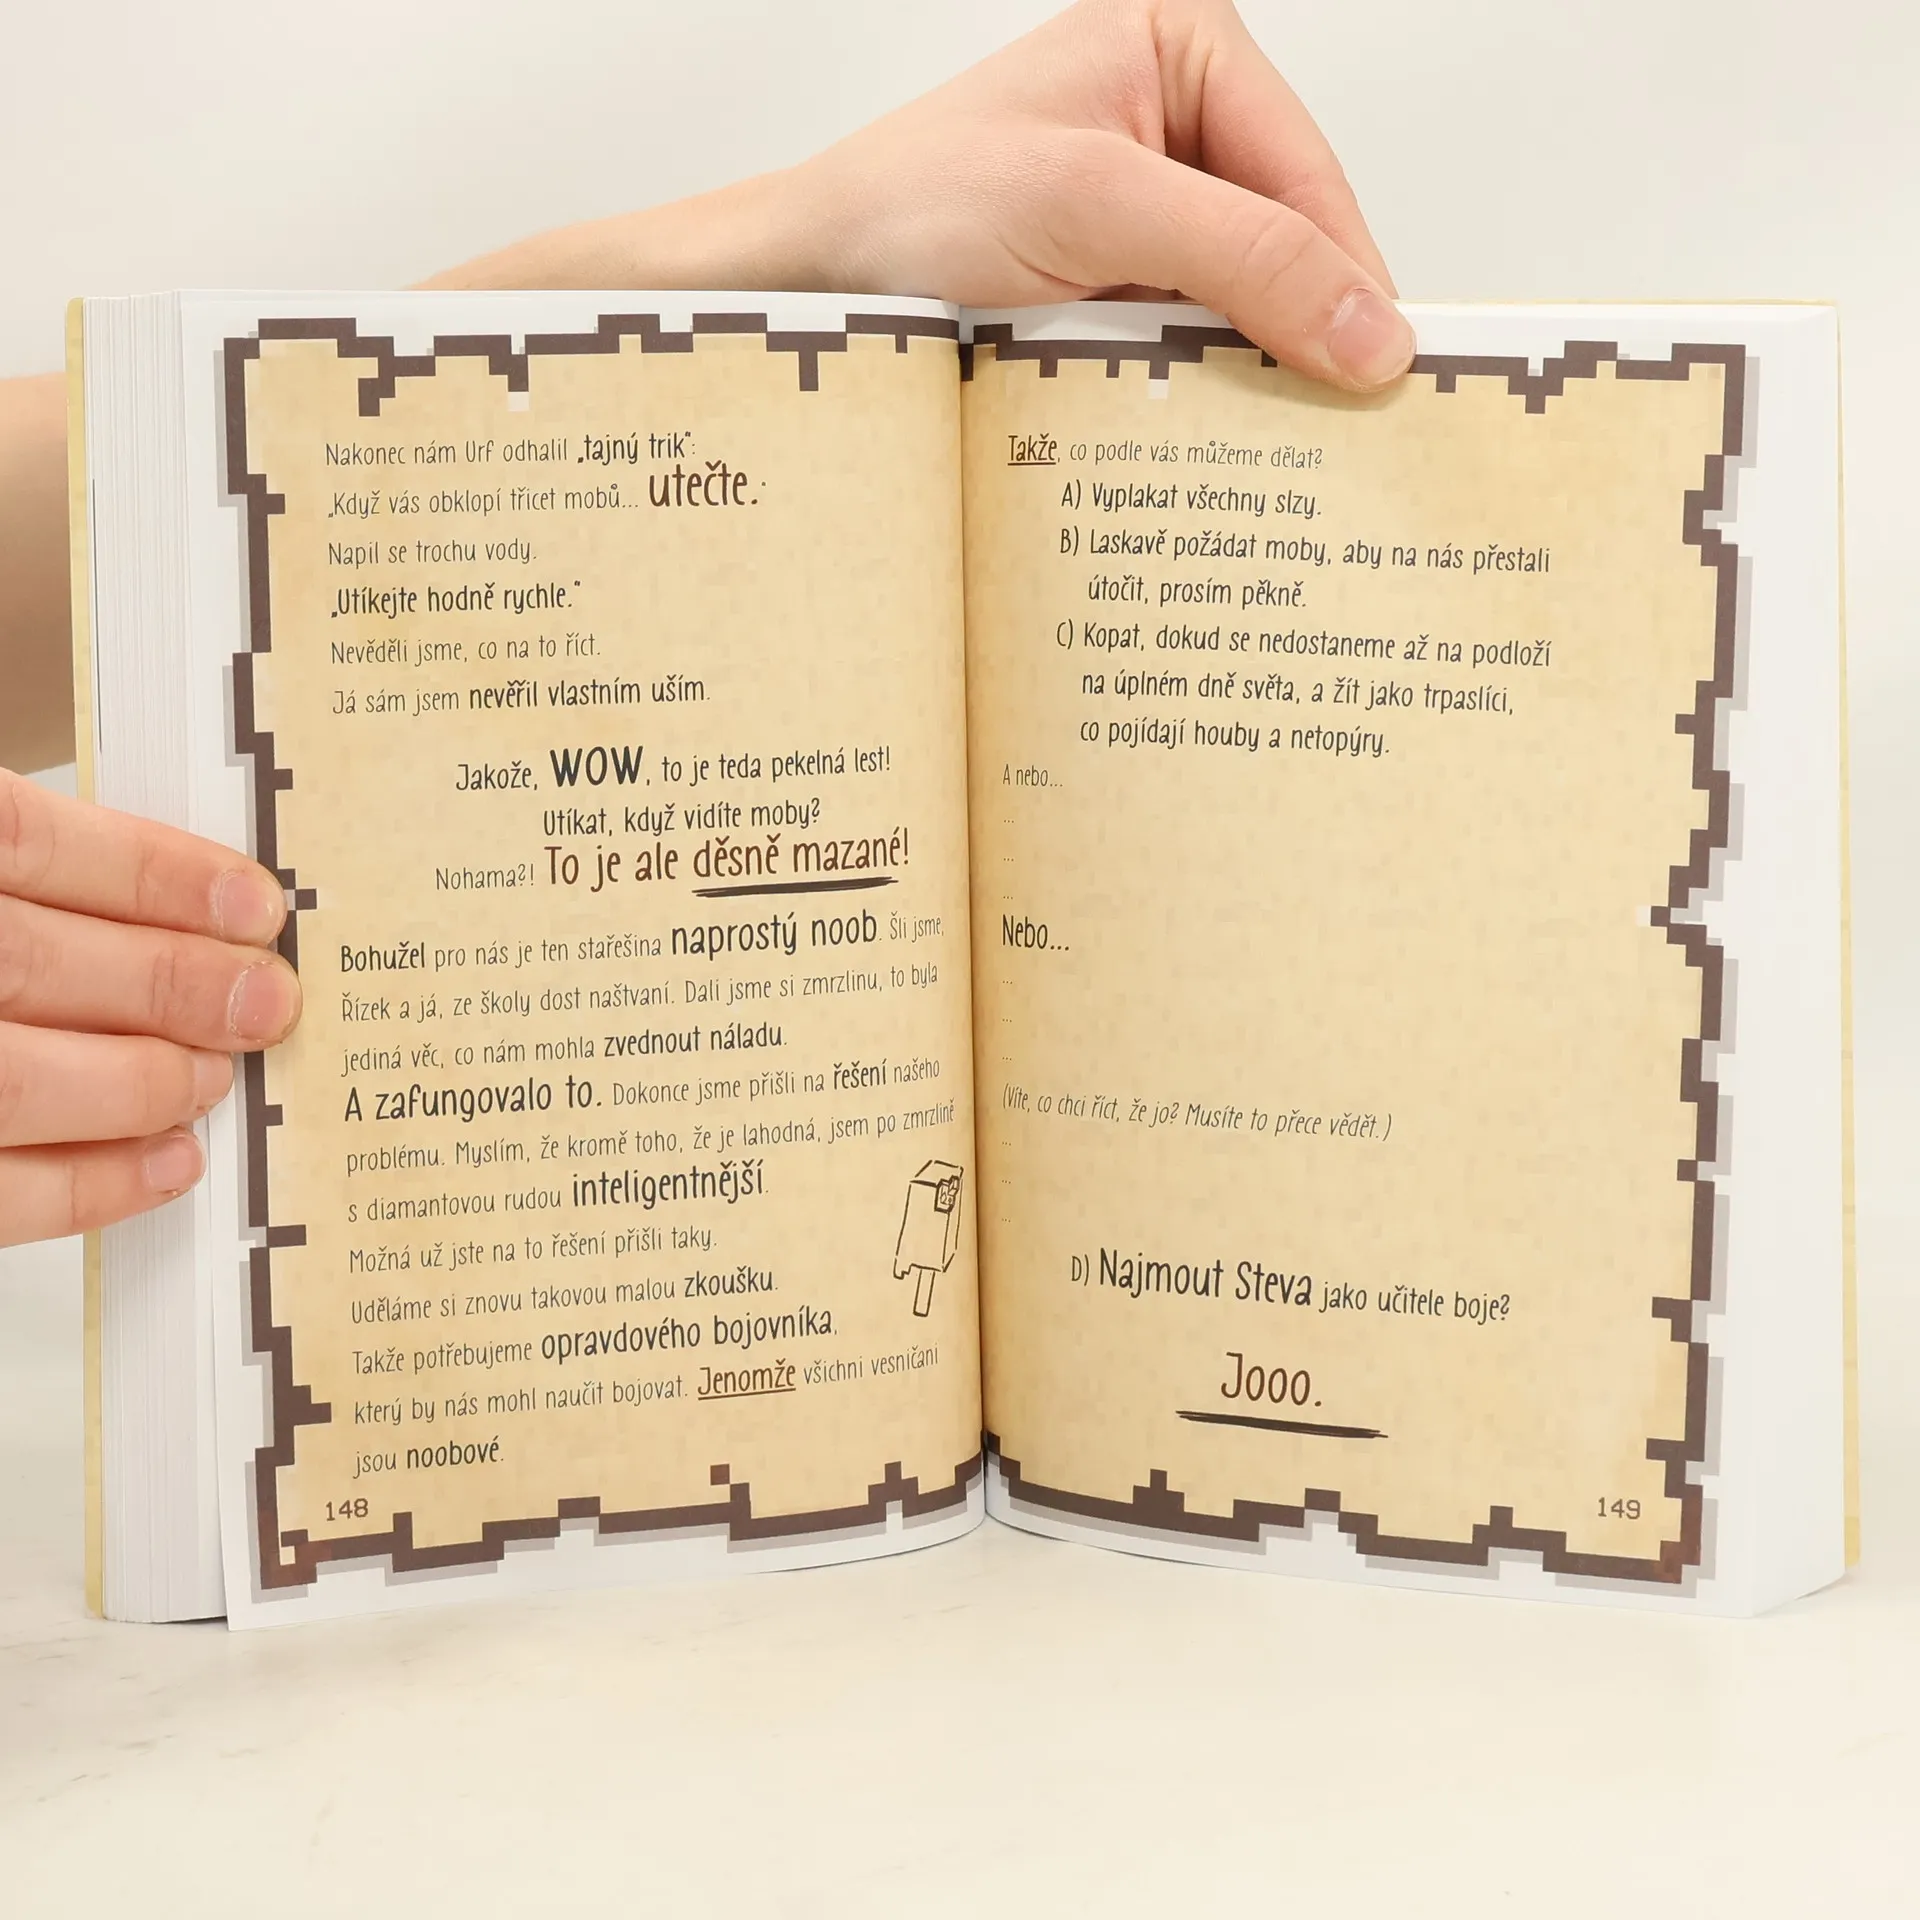 Nakonec nám Urf odhalil „tajný trik“:
„Když vás obklopí třicet mobů... utečte.“
Napil se trochu vody.
„Utíkejte hodně rychle.“
Nevěděli jsme, co na to říct.
Já sám jsem nevěřil vlastním uším.
Jakože, WOW, to je teda pekelná lest!
Utíkat, když vidíte moby?
Nohama?! To je ale děsně mazané!
Bohužel pro nás je ten stařešina naprostý noob. Šli jsme,
Řízek a já, ze školy dost naštvaní. Dali jsme si zmrzlinu, to byla
jediná věc, co nám mohla zvednout náladu.
A zafungovalo to. Dokonce jsme přišli na řešení našeho
problému. Myslím, že kromě toho, že je lahodná, jsem po zmrzlině
s diamantovou rudou inteligentnější.
Možná už jste na to řešení přišli taky.
Uděláme si znovu takovou malou zkoušku.
Takže potřebujeme opravdového bojovníka,
který by nás mohl naučit bojovat. Jenomže všichni vesničani
jsou noobové.
148
Takže, co podle vás můžeme dělat?
A) Vyplakat všechny slzy.
B) Laskavě požádat moby, aby na nás přestali
útočit, prosím pěkně.
C) Kopat, dokud se nedostaneme až na podloží
na úplném dně světa, a žít jako trpaslíci,
co pojídají houby a netopýry.
A nebo...
...
...
...
Nebo...
...
...
...
(Víte, co chci říct, že jo? Musíte to přece vědět.)
...
...
...
D) Najmout Steva jako učitele boje?
Jooo.
149